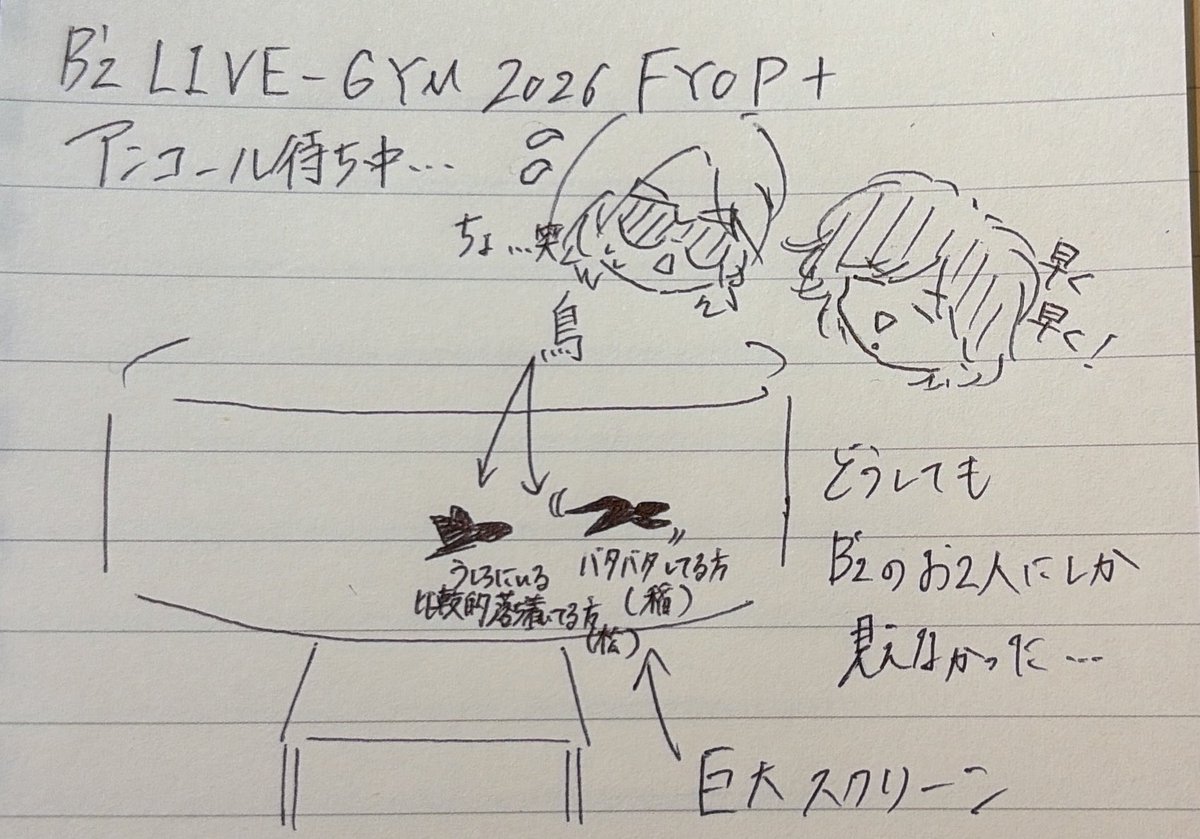 B'z LIVE-GYM 2026 FYOP+
アンコール待ち中…
ちょ…笑
早く
早く!
鳥
うしろにいる
比較的落ち着いてる方
(松)
バタバタしてる方
(稲)
どうしても
B'zのお2人にしか
見えなかった…
巨大スクリーン